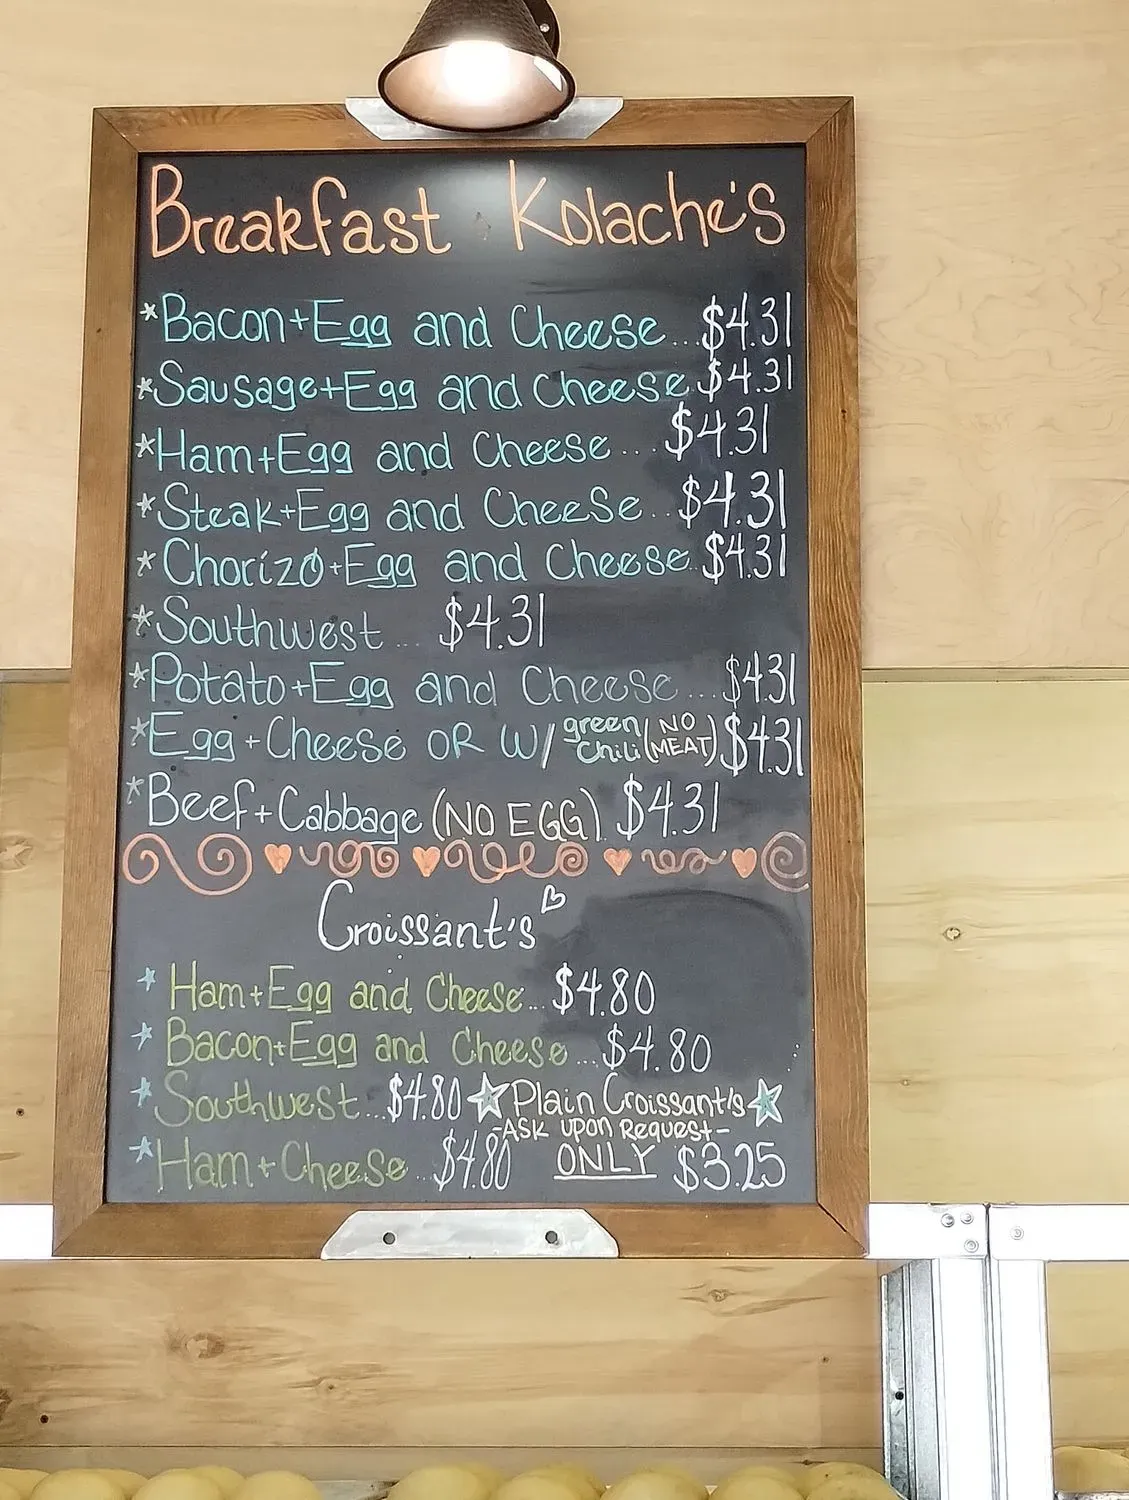 Breakfast Kolache's
*Bacon+Egg and Cheese...$4.31
*Sausage+Egg and Cheese $4.31
*Ham+Egg and Cheese... $4.31
*Steak+Egg and Cheese.. $4.31
*Chorizo+Egg and Cheese.. $4.31
*Southwest... $4.31
*Potato+Egg and Cheese... $4.31
*Egg+Cheese OR W/ green chili (NO MEAT) $4.31
*Beef+Cabbage (NO EGG) $4.31
Croissant's
*Ham+Egg and Cheese... $4.80
*Bacon+Egg and Cheese... $4.80
*Southwest... $4.80 ☆Plain Croissant's☆
-ASK upon Request-
*Ham+Cheese.. $4.80 ONLY $3.25